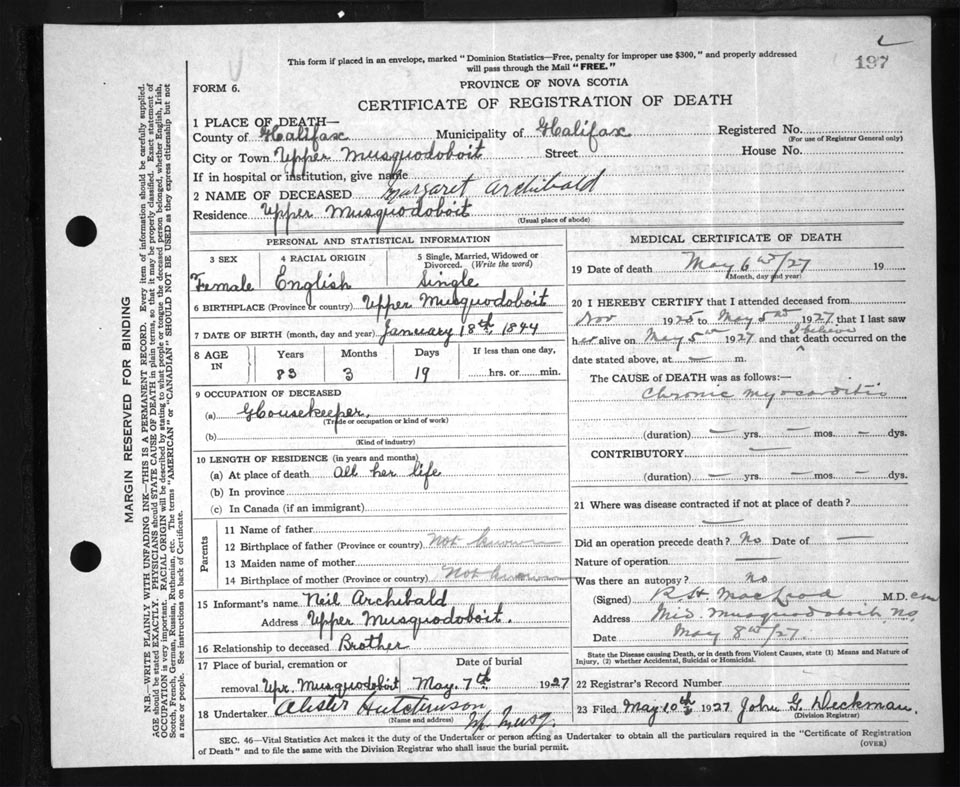 197
This form if placed in an envelope, marked "Dominion Statistics—Free, penalty for improper use $300," and properly addressed
will pass through the Mail "FREE."
FORM 6.
PROVINCE OF NOVA SCOTIA
CERTIFICATE OF REGISTRATION OF DEATH
1 PLACE OF DEATH—
County of Halifax Municipality of Halifax Registered No.
(For use of Registrar General only)
City or Town Upper Musquodoboit Street House No.
If in hospital or institution, give name
2 NAME OF DECEASED Margaret Archibald
Residence Upper Musquodoboit
(Usual place of abode)
PERSONAL AND STATISTICAL INFORMATION
3 SEX 4 RACIAL ORIGIN 5 Single, Married, Widowed or
Divorced. (Write the word)
Female English Single
6 BIRTHPLACE (Province or country) Upper Musquodoboit
7 DATE OF BIRTH (month, day and year) January 18th, 1844
8 AGE IN Years Months Days If less than one day,
83 3 19 hrs. or min.
9 OCCUPATION OF DECEASED
(a) Housekeeper.
(Trade or occupation or kind of work)
(b)
(Kind of industry)
10 LENGTH OF RESIDENCE (in years and months)
(a) At place of death All her life
(b) In province
(c) In Canada (if an immigrant)
Parents
11 Name of father
12 Birthplace of father (Province or country) Not known
13 Maiden name of mother
14 Birthplace of mother (Province or country) Not known
15 Informant's name Neil Archibald
Address Upper Musquodoboit.
16 Relationship to deceased Brother
17 Place of burial, cremation or Date of burial
removal Upr. Musquodoboit May. 7th 1927
18 Undertaker Alister Hutchinson
(Name and address) Up. Musq.
MEDICAL CERTIFICATE OF DEATH
19 Date of death May 6th/27 19
(Month, day and year)
20 I HEREBY CERTIFY that I attended deceased from
Nov 1925 to May 5th 1927 that I last saw
I believe
her alive on May 5th 1927 and that death occurred on the
date stated above, at — m.
The CAUSE of DEATH was as follows:—
Chronic myocarditis
(duration) — yrs. — mos. — dys.
CONTRIBUTORY —
(duration) — yrs. — mos. — dys.
21 Where was disease contracted if not at place of death?
—
Did an operation precede death? No Date of —
Nature of operation —
Was there an autopsy? no
(Signed) R H MacLeod M.D. cm
Address Mid. Musquodoboit, N.S.
Date May 8th/27.
State the Disease causing Death, or in death from Violent Causes, state (1) Means and Nature of
Injury, (2) whether Accidental, Suicidal or Homicidal.
22 Registrar's Record Number
23 Filed May 10th 1927 John G. Deckman.
(Division Registrar)
SEC. 46—Vital Statistics Act makes it the duty of the Undertaker or person acting as Undertaker to obtain all the particulars required in the "Certificate of Registration
of Death" and to file the same with the Division Registrar who shall issue the burial permit.
(OVER)
MARGIN RESERVED FOR BINDING
N.B.—WRITE PLAINLY, WITH UNFADING INK—THIS IS A PERMANENT RECORD. Every item of information should be carefully supplied.
AGE should be stated EXACTLY. PHYSICIANS should STATE CAUSE OF DEATH in plain terms, so that it may be properly classified. Exact statement of
OCCUPATION is very important. RACIAL ORIGIN will be described by stating to what people or tongue the deceased person belonged, whether English, Irish,
Scotch, French, German, Russian, Ruthenian, etc. The terms "AMERICAN" or "CANADIAN" SHOULD NOT BE USED as they express citizenship but not
a race or people. See instructions on back of Certificate.